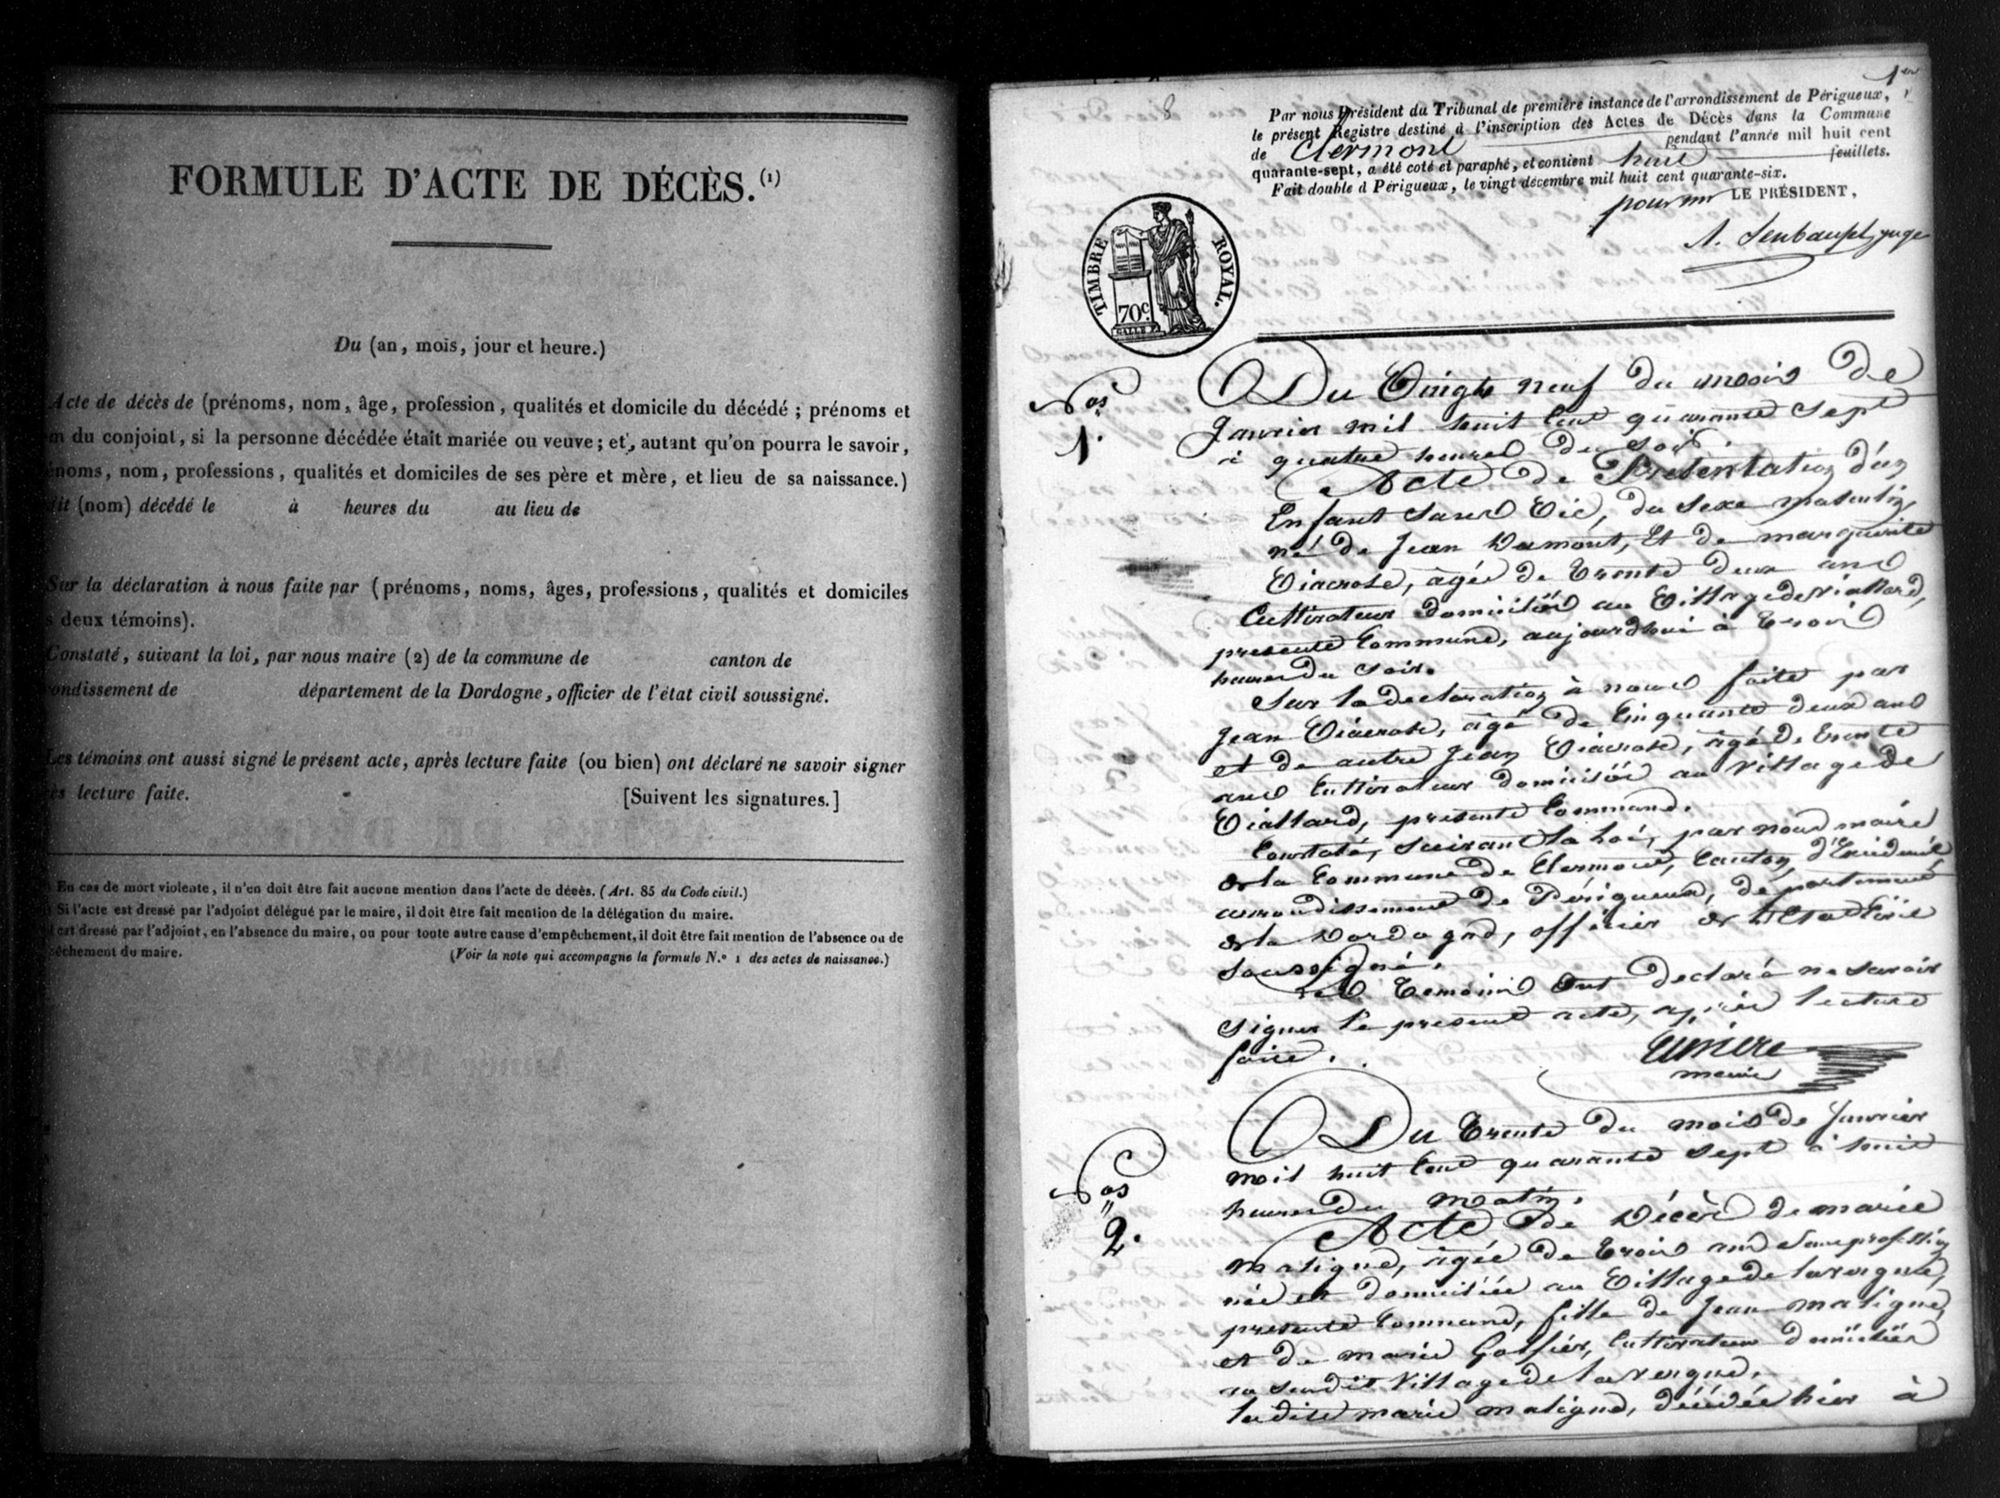 FORMULE D'ACTE DE DÉCÈS. (1)
Du (an, mois, jour et heure.)
Acte de décès de (prénoms, nom, âge, profession, qualités et domicile du décédé ; prénoms et
m du conjoint, si la personne décédée était mariée ou veuve ; et, autant qu'on pourra le savoir,
énoms, nom, professions, qualités et domiciles de ses père et mère, et lieu de sa naissance.)
dit (nom) décédé le à heures du au lieu de
Sur la déclaration à nous faite par (prénoms, noms, âges, professions, qualités et domiciles
s deux témoins).
Constaté, suivant la loi, par nous maire (2) de la commune de canton de
ondissement de département de la Dordogne, officier de l'état civil soussigné.
Les témoins ont aussi signé le présent acte, après lecture faite (ou bien) ont déclaré ne savoir signer
ès lecture faite. [Suivent les signatures.]
En cas de mort violente, il n'en doit être fait aucune mention dans l'acte de décès. (Art. 85 du Code civil.)
Si l'acte est dressé par l'adjoint délégué par le maire, il doit être fait mention de la délégation du maire.
l est dressé par l'adjoint, en l'absence du maire, ou pour toute autre cause d'empêchement, il doit être fait mention de l'absence ou de
pêchement du maire. (Voir la note qui accompagne la formule N.° 1 des actes de naissance.)
1er
8
Par nous Président du Tribunal de première instance de l'arrondissement de Périgueux,
le présent Registre destiné à l'inscription des Actes de Décès dans la Commune
de Clermont pendant l'année mil huit cent
quarante-sept, a été coté et paraphé, et contient huit feuillets.
Fait double à Périgueux, le vingt décembre mil huit cent quarante-six.
pour mr LE PRÉSIDENT,
juge
TIMBRE ROYAL.
70c.
Nos
1.
Du Vingt neuf du mois de
Janvier mil huit Cent quarante Sept
à quatre heures du Soir.
Acte de Présentation d'un
Enfant Sans Vie, du Sexe masculin,
né de Jean Dumont, Et de marguerite
Viacroze, âgée de Trente deux ans
Cultivateurs domiciliés au Village de Viallard,
presente Commune, aujourdhui à Trois
heures du Soir.
Sur la declaration à nous faite par
Jean Viacroze, âgé de Cinquante deux ans
et de autre Jean Viacroze, âgé de Trente
ans Cultivateurs domiciliés au Village de
Viallard, presente Commune.
Constaté, Suivant la Loi, par nous maire
de la Commune de Clermont, Canton d'Exideuil,
arrondissement de Périgueux, departement
de la Dordogne, officier de l'Etat Civil
Soussigné.
Les Temoins ont declaré ne Savoir
Signer le present acte, après lecture
faite.
maire
Nos
2.
Du Trente du mois de Janvier
mil huit Cent quarante Sept à huit
heures du matin.
Acte de Décès de marie
maligne, âgée de Trois ans Sans profession
née et domiciliée au Village de Lavergne,
presente Commune, fille de Jean maligne,
et de marie Golfier, Cultivateurs domiciliés
au Village de Lavergne.
Ladite marie maligne, décédée hier à